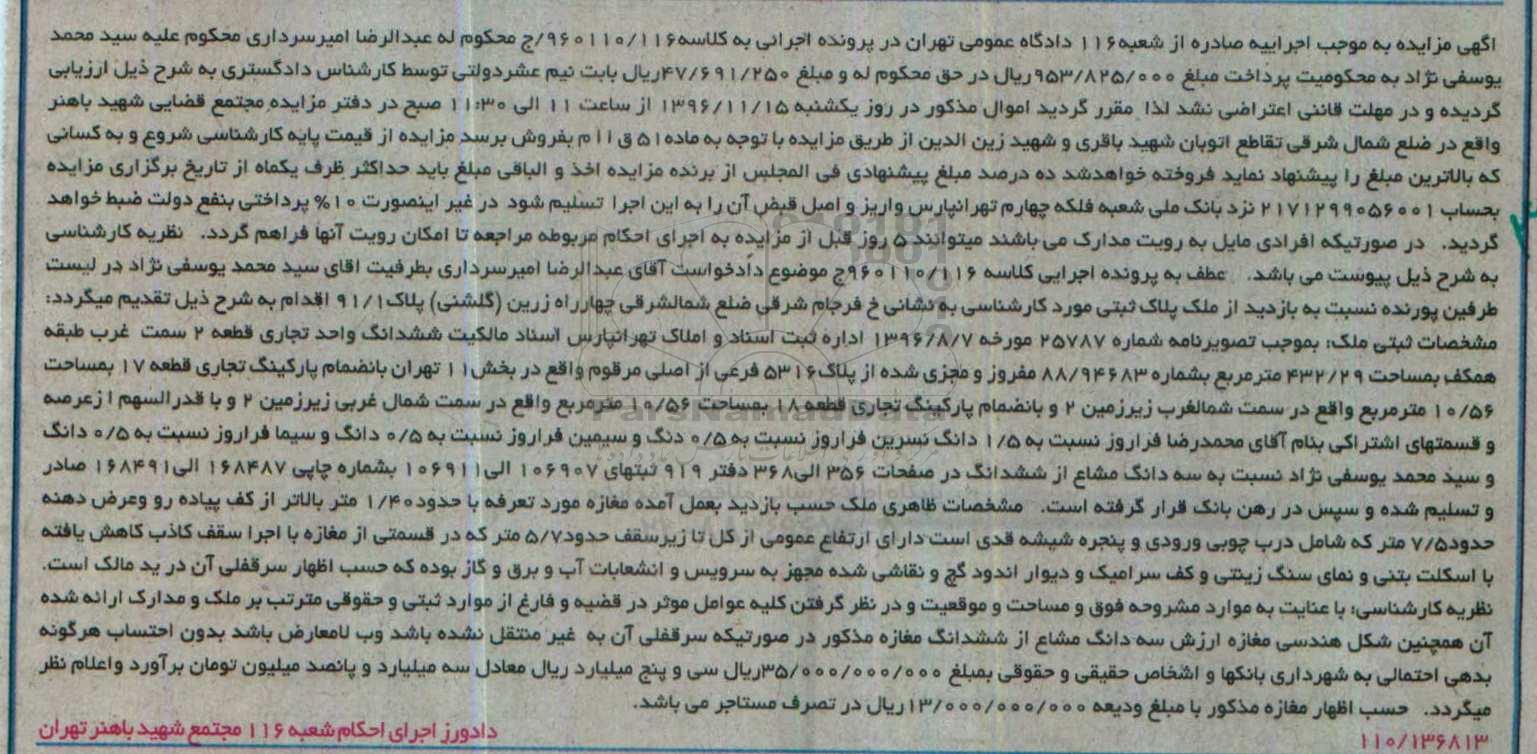 آگهی مزایده به موجب اجراییه صادره از شعبه۱۱۶ دادگاه عمومی تهران در پرونده اجرائی به کلاسه۹۶۰۱۱۰/۱۱۶/ج محکوم له عبدالرضا امیرسرداری محکوم علیه سید محمد
یوسفی نژاد به محکومیت پرداخت مبلغ ۹۵۳/۸۲۵/۰۰۰ریال در حق محکوم له و مبلغ ۴۷/۶۹۱/۲۵۰ریال بابت نیم عشردولتی توسط کارشناس دادگستری به شرح ذیل ارزیابی
گردیده و در مهلت قاننی اعتراضی نشد لذا مقرر گردید اموال مذکور در روز یکشنبه ۱۳۹۶/۱۱/۱۵ از ساعت ۱۱ الی ۱۱:۳۰ صبح در دفتر مزایده مجتمع قضایی شهید باهنر
واقع در ضلع شمال شرقی تقاطع اتوبان شهید باقری و شهید زین الدین از طریق مزایده با توجه به ماده۵۱ ق ا ا م بفروش برسد مزایده از قیمت پایه کارشناسی شروع و به کسانی
که بالاترین مبلغ را پیشنهاد نماید فروخته خواهدشد ده درصد مبلغ پیشنهادی فی المجلس از برنده مزایده اخذ و الباقی مبلغ باید حداکثر ظرف یکماه از تاریخ برگزاری مزایده
بحساب ۲۱۷۱۲۹۹۰۵۶۰۰۱ نزد بانک ملی شعبه فلکه چهارم تهرانپارس واریز و اصل قبض آن را به این اجرا تسلیم شود در غیر اینصورت ۱۰% پرداختی بنفع دولت ضبط خواهد
گردید. در صورتیکه افرادی مایل به رویت مدارک می باشند میتوانند ۵ روز قبل از مزایده به اجرای احکام مربوطه مراجعه تا امکان رویت آنها فراهم گردد. نظریه کارشناسی
به شرح ذیل پیوست می باشد. عطف به پرونده اجرایی کلاسه ۹۶۰۱۱۰/۱۱۶ج موضوع دادخواست آقای عبدالرضا امیرسرداری بطرفیت اقای سید محمد یوسفی نژاد در لیست
طرفین پورنده نسبت به بازدید از ملک پلاک ثبتی مورد کارشناسی به نشانی خ فرجام شرقی ضلع شمالشرقی چهارراه زرین (گلشنی) پلاک۹۱/۱ اقدام به شرح ذیل تقدیم میگردد:
مشخصات ثبتی ملک: بموجب تصویرنامه شماره ۲۵۷۸۷ مورخه ۱۳۹۶/۸/۷ اداره ثبت اسناد و املاک تهرانپارس اسناد مالکیت ششدانگ واحد تجاری قطعه ۲ سمت غرب طبقه
همکف بمساحت ۴۳۲/۲۹ مترمربع بشماره ۸۸/۹۴۶۸۳ مفروز و مجزی شده از پلاک۵۳۱۶ فرعی از اصلی مرقوم واقع در بخش۱۱ تهران بانضمام پارکینگ تجاری قطعه ۱۷ بمساحت
۱۰/۵۶ مترمربع واقع در سمت شمالغرب زیرزمین ۲ و بانضمام پارکینگ تجاری قطعه ۱۸ بمساحت ۱۰/۵۶ مترمربع واقع در سمت شمال غربی زیرزمین ۲ و با قدرالسهم ا زعرصه
و قسمتهای اشتراکی بنام آقای محمدرضا فراروز نسبت به ۱/۵ دانگ نسرین فراروز نسبت به ۰/۵ دنگ و سیمین فراروز نسبت به ۰/۵ دانگ و سیما فراروز نسبت به ۰/۵ دانگ
و سید محمد یوسفی نژاد نسبت به سه دانگ مشاع از ششدانگ در صفحات ۳۵۶ الی۳۶۸ دفتر ۹۱۹ ثبتهای ۱۰۶۹۰۷ الی۱۰۶۹۱۱ بشماره چاپی ۱۶۸۴۸۷ الی۱۶۸۴۹۱ صادر
و تسلیم شده و سپس در رهن بانک قرار گرفته است. مشخصات ظاهری ملک حسب بازدید بعمل آمده مغازه مورد تعرفه با حدود۱/۴۰ متر بالاتر از کف پیاده رو وعرض دهنه
حدود۷/۵ متر که شامل درب چوبی ورودی و پنجره شیشه قدی است دارای ارتفاع عمومی از کل تا زیرسقف حدود۵/۷ متر که در قسمتی از مغازه با اجرا سقف کاذب کاهش یافته
با اسکلت بتنی و نمای سنگ زینتی و کف سرامیک و دیوار اندود گچ و نقاشی شده مجهز به سرویس و انشعابات آب و برق و گاز بوده که حسب اظهار سرقفلی آن در ید مالک است.
نظریه کارشناسی: با عنایت به موارد مشروحه فوق و مساحت و موقعیت و در نظر گرفتن کلیه عوامل موثر در قضیه و فارغ از موارد ثبتی و حقوقی مترتب بر ملک و مدارک ارائه شده
آن همچنین شکل هندسی مغازه ارزش سه دانگ مشاع از ششدانگ مغازه مذکور در صورتیکه سرقفلی آن به غیر منتقل نشده باشد وب لامعارض باشد بدون احتساب هرگونه
بدهی احتمالی به شهرداری بانکها و اشخاص حقیقی و حقوقی بمبلغ ۳۵/۰۰۰/۰۰۰/۰۰۰ریال سی و پنج میلیارد ریال معادل سه میلیارد و پانصد میلیون تومان برآورد واعلام نظر
میگردد. حسب اظهار مغازه مذکور با مبلغ ودیعه ۱۳/۰۰۰/۰۰۰/۰۰۰ریال در تصرف مستاجر می باشد.
۱۱۰/۱۳۶۸۱۳ دادورز اجرای احکام شعبه ۱۱۶ مجتمع شهید باهنر تهران